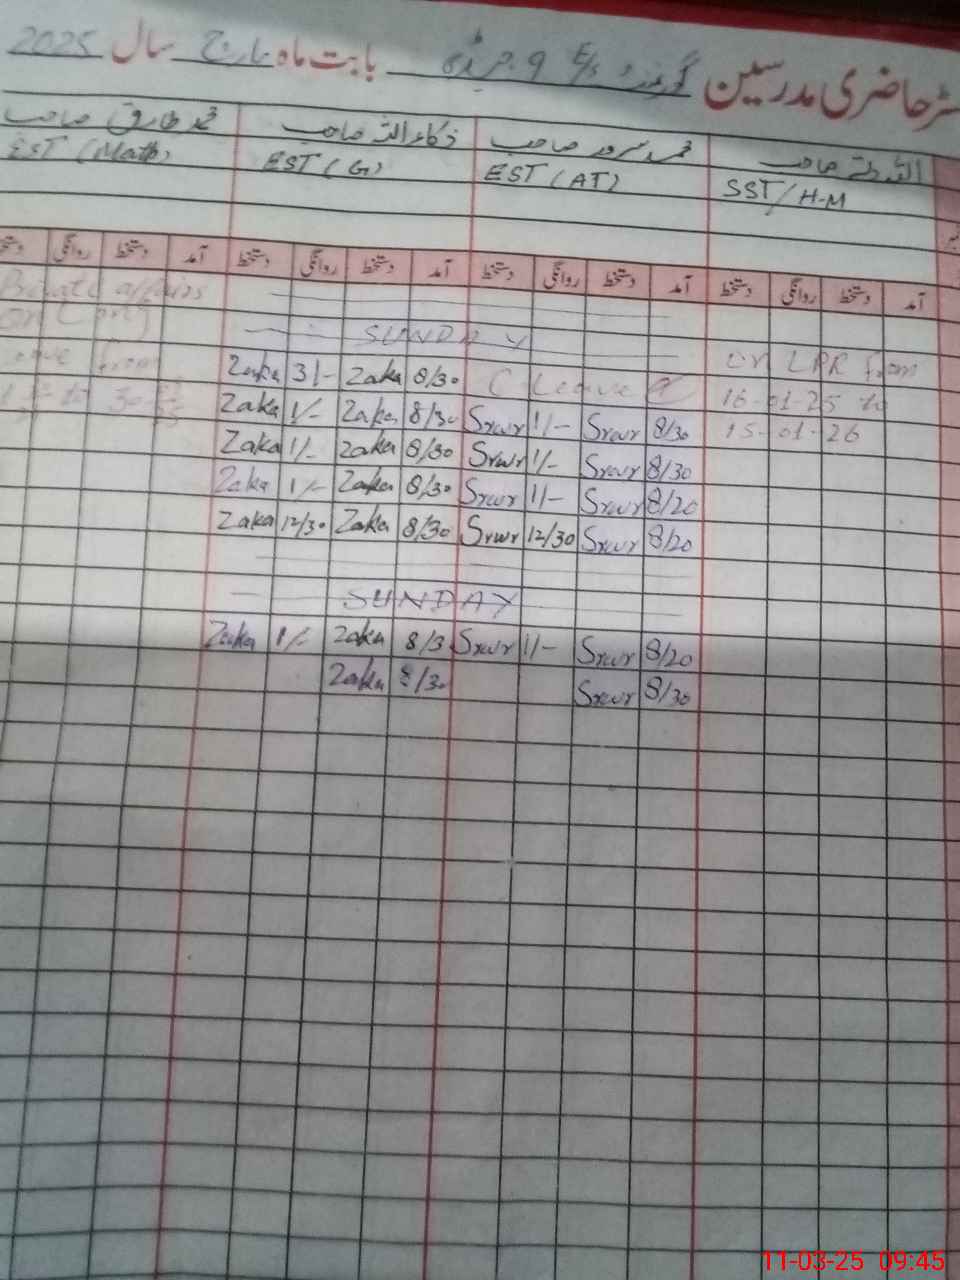 رجسٹر حاضری مدرسین گورنمنٹ E/S 9. بابت ماہ مارچ سال 2025
اللہ دتہ صاحب محمد سرور صاحب ذکاء اللہ صاحب محمد طارق صاحب
SST/H-M EST (AT) EST (G) EST (Math)
آمد دستخط روانگی دستخط آمد دستخط روانگی دستخط آمد دستخط روانگی دستخط آمد دستخط روانگی دستخط
Private affairs
SUNDAY
leave from Zaka 3/- Zaka 8/30 C Leave on LPR from
Zaka 1/- Zaka 8/30 Srwr 1/- Srwr 8/30 16-01-25 to
Zaka 1/- Zaka 8/30 Srwr 1/- Srwr 8/30 15-01-26
Zaka 1/- Zaka 8/30 Srwr 1/- Srwr 8/20
Zaka 12/30 Zaka 8/30 Srwr 12/30 Srwr 8/20
SUNDAY
Zaka 1/- Zaka 8/3 Srwr 1/- Srwr 8/20
Zaka 8/30 Srwr 8/30
11-03-25 09:45